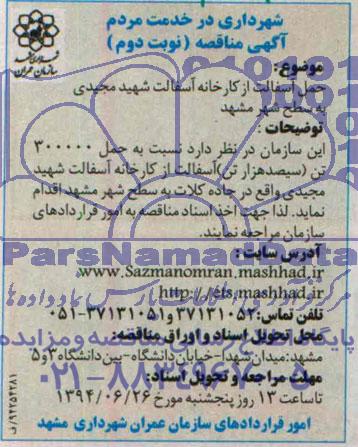 شهرداری در خدمت مردم
آگهی مناقصه (نوبت دوم)
شهرداری مشهد
سازمان عمران
موضوع:
حمل آسفالت از کارخانه آسفالت شهید مجیدی
به سطح شهر مشهد
توضیحات:
این سازمان در نظر دارد نسبت به حمل ۳۰۰۰۰۰
تن (سیصدهزار تن) آسفالت از کارخانه آسفالت شهید
مجیدی واقع در جاده کلات به سطح شهر مشهد اقدام
نماید. لذا جهت اخذ اسناد مناقصه به امور قراردادهای
سازمان مراجعه نمایند.
آدرس سایت:
www.Sazmanomran.mashhad.ir
http://ets.mashhad.ir
تلفن تماس: ۳۷۱۳۱۰۵۲ و ۳۷۱۳۱۰۵۱-۰۵۱
محل تحویل اسناد و اوراق مناقصه:
مشهد: میدان شهدا-خیابان دانشگاه-بین دانشگاه ۳ و ۵
مهلت مراجعه و تحویل اسناد:
تا ساعت ۱۳ روز پنجشنبه مورخ ۱۳۹۴/۰۶/۲۶
امور قراردادهای سازمان عمران شهرداری مشهد
ParsNamadData
۰۲۱-۸۸۳۴۹۶۷۰-۵